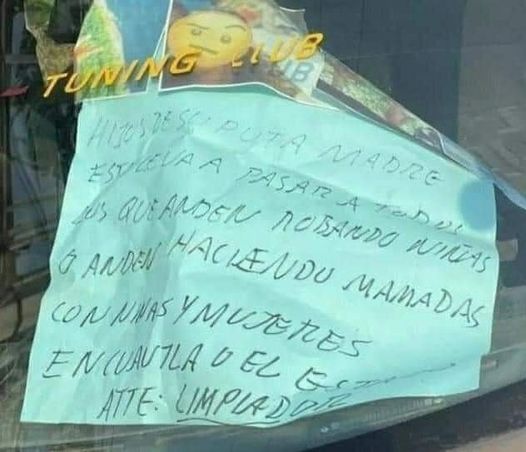 TUNING CLUB
UB
HIJOS DE SU PUTA MADRE
ESTO LE VA A PASAR A TODOS
LOS QUE ANDEN ROBANDO NIÑAS
O ANDEN HACIENDO MAMADAS
CON NIÑAS Y MUJERES
EN CUAUTLA O EL
ATTE: LIMPIADOR